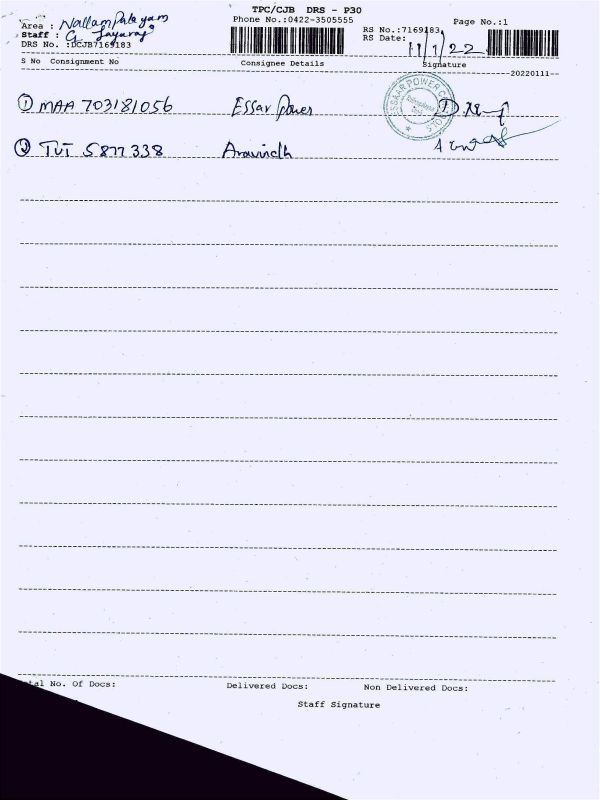 TPC/CJB DRS - P30
Area : Nallampalayam Phone No.:0422-3505555 Page No.:1
Staff : G Jayaraj RS No.:7169183
DRS No. :DCJB7169183 RS Date: 11/1/22
S No Consignment No Consignee Details Signature
--20220111--
① MAA 703181056 Essar Power
② TUT 5877338 Aravindh
ESSAR POWER
No. Of Docs: Delivered Docs: Non Delivered Docs:
Staff Signature